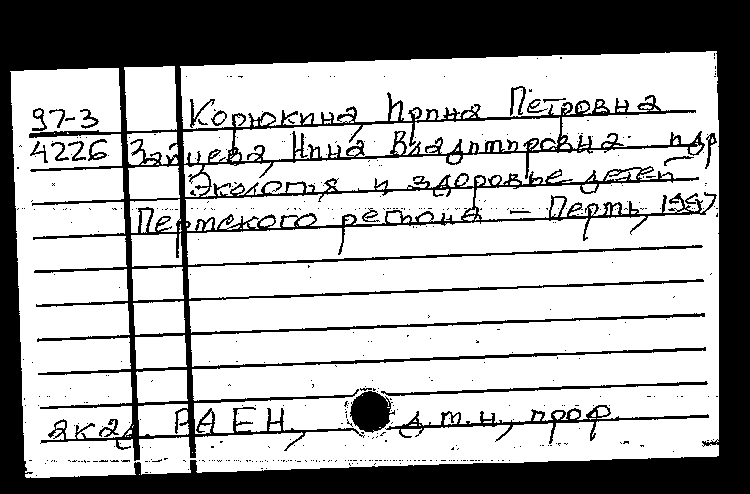 97-3 Корюкина, Ирина Петровна
4226 Зайцева, Нина Владимировна и др
Экология и здоровье детей
Пермского региона – Пермь, 1997
акад. РАЕН, д.м.н., проф.